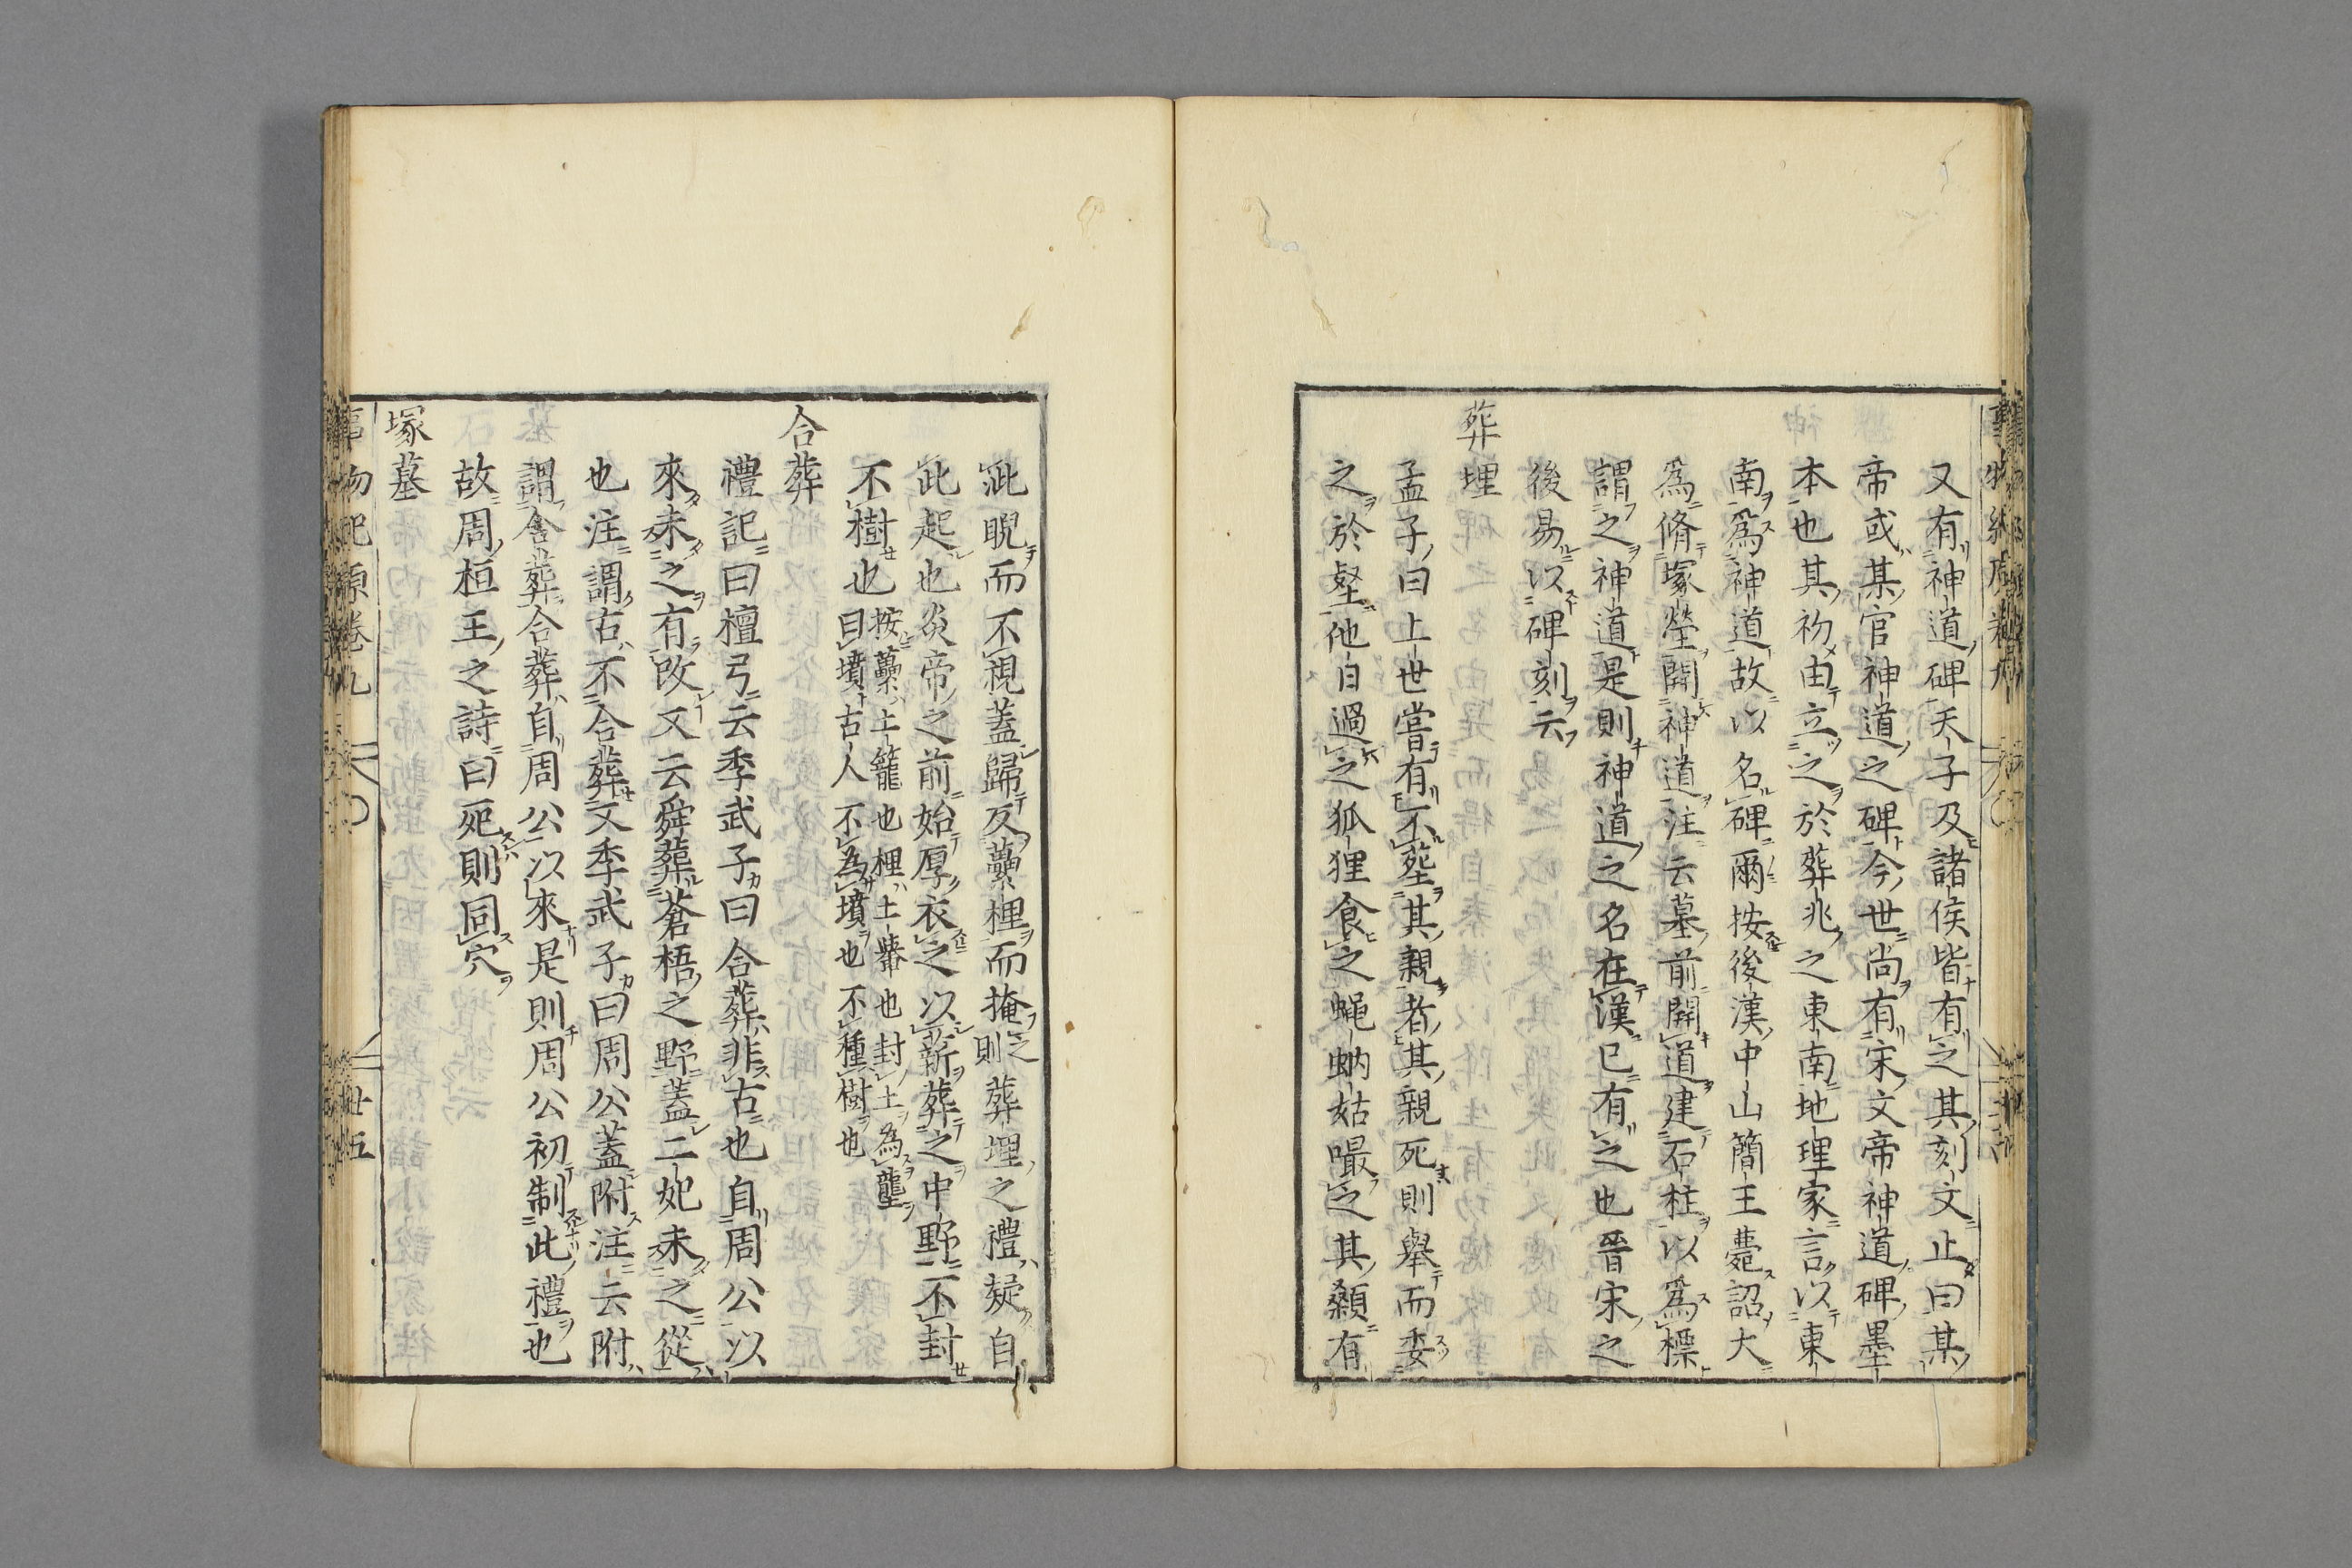 又有神道碑天子及諸侯皆有之其刻文止曰某
帝或某官神道之碑今世尚有宋文帝神道碑墨
本也其初由立之於葬兆之東南地理家言以東
南爲神道故以名碑爾按後漢中山簡王薨詔大
爲脩塚塋開神道注云墓前開道建石柱以爲標
謂之神道是則神道之名在漢已有之也晉宋之
後易以碑刻云
葬埋
孟子曰上世嘗有不葬其親者其親死則舉而委
之於壑他日過之狐狸食之蝇蚋姑嘬之其顙有
泚睨而不視蓋歸反虆梩而掩之則葬埋之禮疑自
此起也炎帝之前始厚衣之以薪葬之中野不封
不樹也
按虆上籠也梩土轝也封土為壟
曰墳古人不為墳也不種樹也
合葬
禮記曰檀弓云季武子曰合葬非古也自周公以
來未之有改又云舜葬蒼梧之野蓋二妃未之從
也注謂古不合葬又季武子曰周公蓋附注云附
謂合葬合葬自周公以來是則周公初制此禮也
故周桓王之詩曰死則同穴
塚墓
事物紀原卷九 廿五